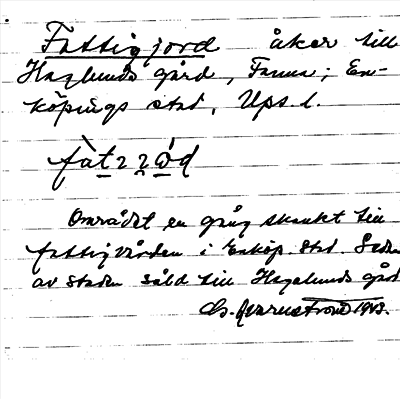 Fattigjord åker till
Haglunds gård, Fanna; En-
köpings stad, Upsl.
fàtɩɩo̊d
Området en gång skänkt till
fattigvården i Enköp. stad. Sedan
av staden såld till Hagelunds gård
1943.